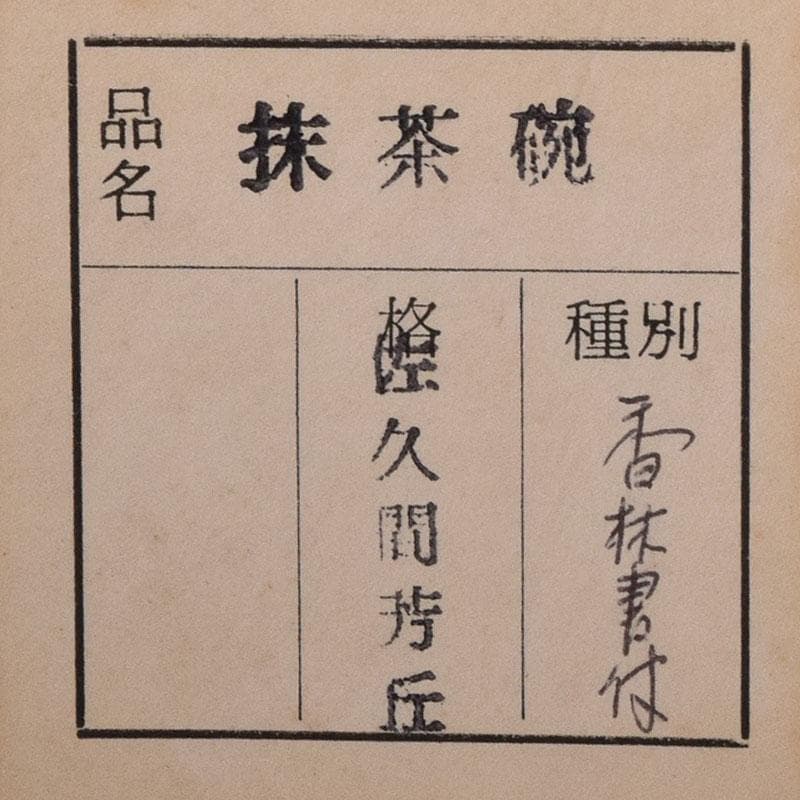 品名
抹茶碗
種別
香林書付
格
佐久間芳丘